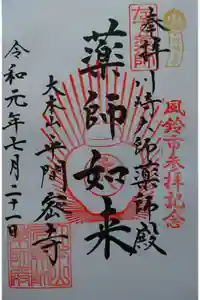 風鈴市参拝記念
奉拝
川崎大師薬師殿
薬師如来
大本山平間寺
令和元年七月二十一日